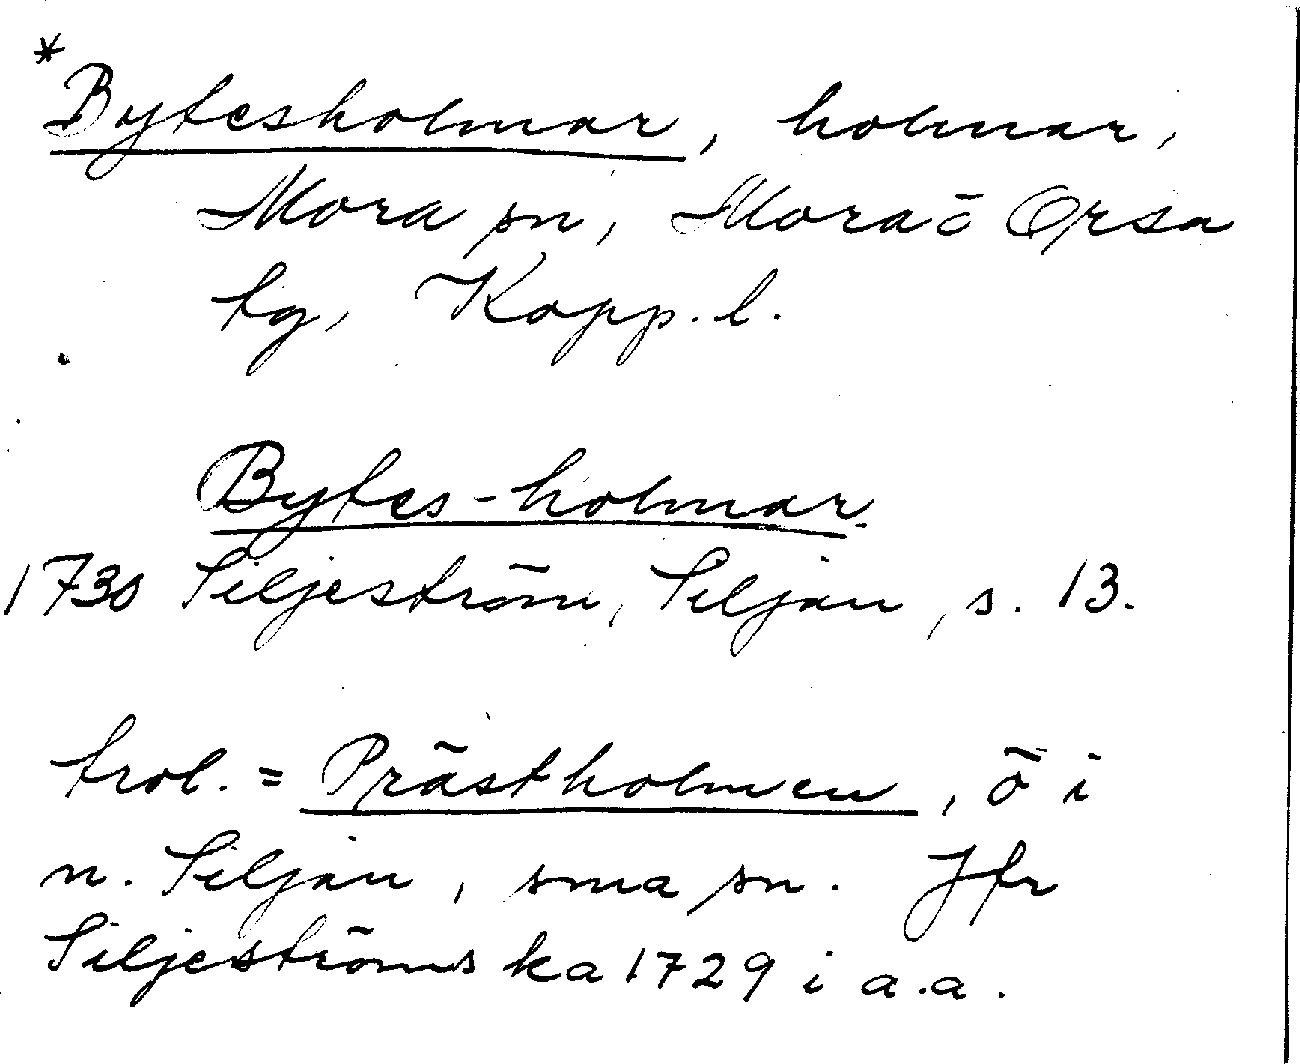 *
Bytesholmar, holmar,
Mora sn, Mora o Orsa
tg, Kopp. l.
Bytes-holmar.
1730 Siljeström, Siljan, s. 13.
trol. = Prästholmen, ö i
n. Siljan, sma sn. Jfr
Siljeströms ka 1729 i a.a.